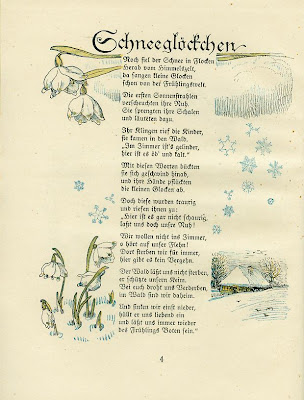 Schneeglöckchen
Noch fiel der Schnee in Flocken
Herab vom Himmelszelt,
da fangen kleine Glocken
schon von der Frühlingswelt.
Die ersten Sonnenstrahlen
verscheuchten ihre Ruh.
Sie sprengten ihre Schalen
und läuteten dazu.
Ihr Klingen rief die Kinder,
sie kamen in den Wald.
„Im Zimmer ist's gelinder,
hier ist es öd' und kalt."
Mit diesen Worten bückten
sie sich geschwind hinab,
und ihre Hände pflückten
die kleinen Glocken ab.
Doch diese wurden traurig
und riefen ihnen zu:
„Hier ist es gar nicht schaurig,
laßt uns doch unsre Ruh!
Wir wollen nicht ins Zimmer,
o hört auf unser Flehn!
Dort sterben wir für immer,
hier gibt es kein Vergehn.
Der Wald läßt uns nicht sterben,
er schützte unsern Keim.
Bei euch droht uns Verderben,
im Wald sind wir daheim.
Und sinken wir einst nieder,
hüllt er uns liebend ein
und läßt uns immer wieder
des Frühlings Boten sein."
4